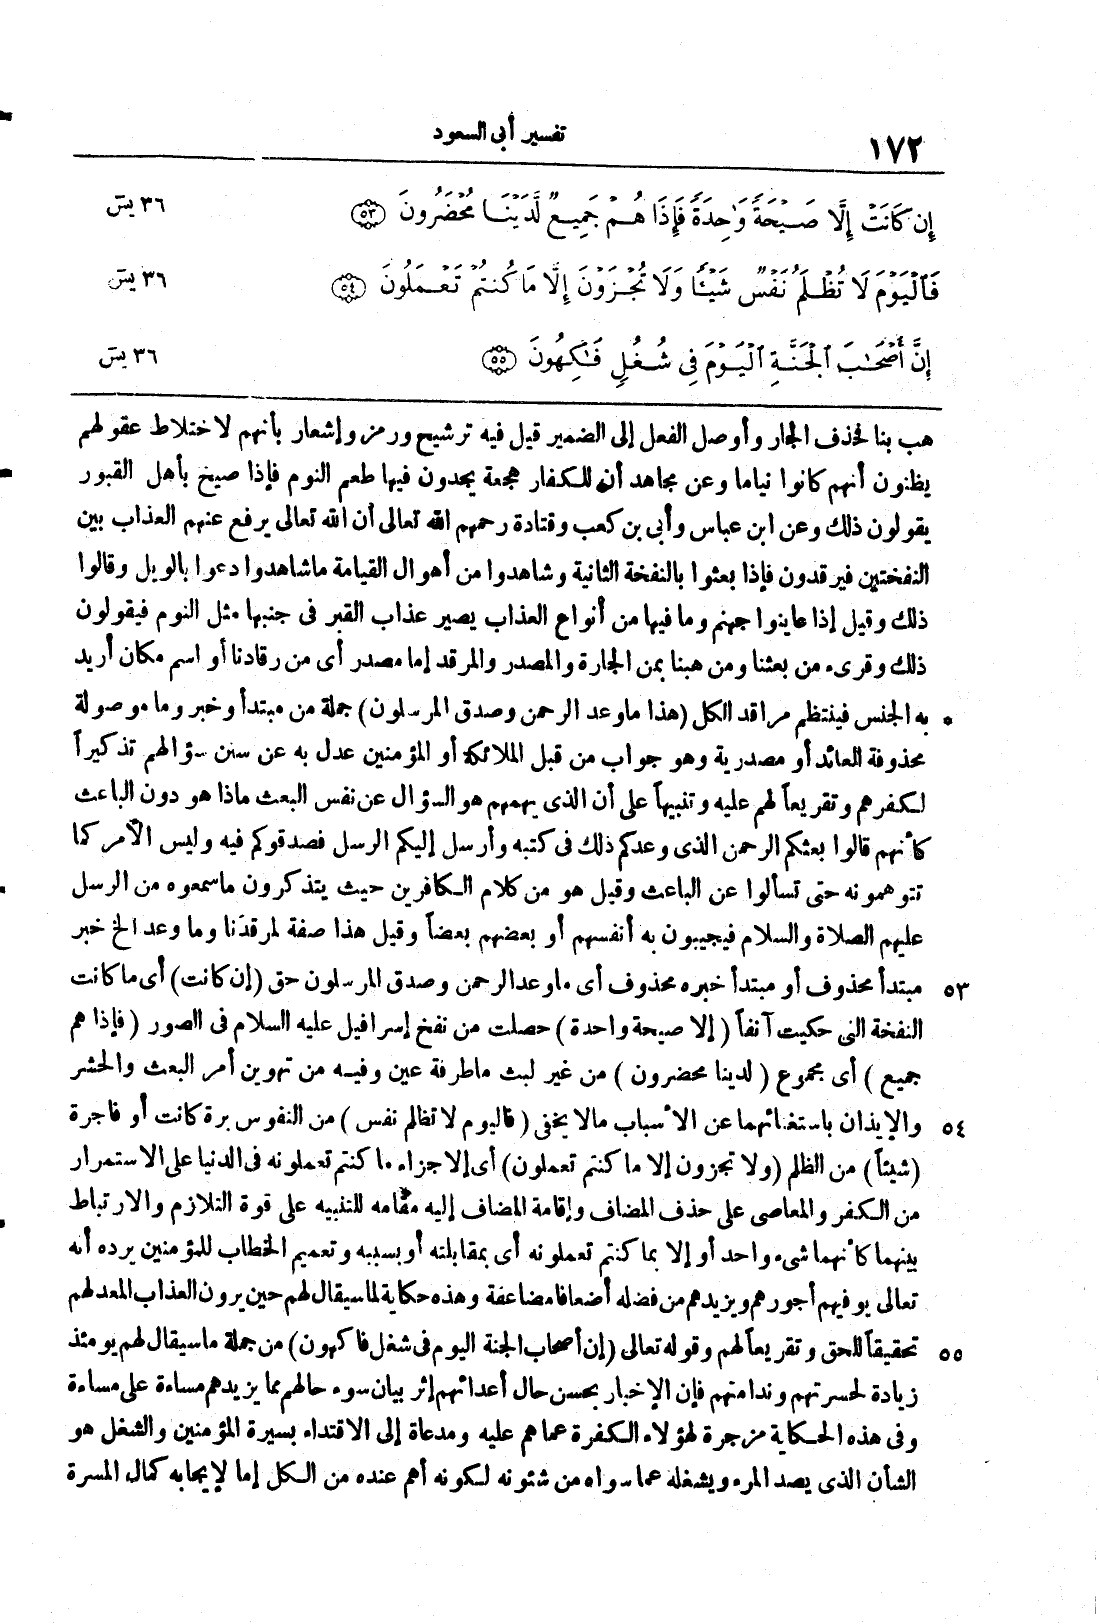 ١٧٢ تفسير أبى السعود
إِن كَانَتْ إِلَّا صَيْحَةً وَٰحِدَةً فَإِذَا هُمْ جَمِيعٌ لَّدَيْنَا مُحْضَرُونَ ٥٣ ٣٦ يس
فَٱلْيَوْمَ لَا تُظْلَمُ نَفْسٌ شَيْـًٔا وَلَا تُجْزَوْنَ إِلَّا مَا كُنتُمْ تَعْمَلُونَ ٥٤ ٣٦ يس
إِنَّ أَصْحَٰبَ ٱلْجَنَّةِ ٱلْيَوْمَ فِي شُغُلٍ فَٰكِهُونَ ٥٥ ٣٦ يس
هب بنا فحذف الجار وأوصل الفعل إلى الضمير قيل فيه ترشيح ورمز وإشعار بأنهم لاختلاط عقولهم
يظنون أنهم كانوا نياما وعن مجاهد أن للكفار هجعة يجدون فيها طعم النوم فإذا صيخ بأهل القبور
يقولون ذلك وعن ابن عباس وأبى بن كعب وقتادة رحمهم الله تعالى أن الله تعالى يرفع عنهم العذاب بين
النفختين فيرقدون فإذا بعثوا بالنفخة الثانية وشاهدوا من أهوال القيامة ماشاهدوا دعوا بالويل وقالوا
ذلك وقيل إذا عاينوا جهنم وما فيها من أنواع العذاب يصير عذاب القبر فى جنبها مثل النوم فيقولون
ذلك وقرىء من بعثنا ومن هبنا بمن الجارة والمصدر والمرقد إما مصدر أى من رقادنا أو اسم مكان أريد
* به الجنس فينتظم مراقد الكل (هذا ماوعد الرحمن وصدق المرسلون) جملة من مبتدأ وخبر وما موصولة
محذوفة العائد أو مصدرية وهو جواب من قبل الملائكة أو المؤمنين عدل به عن سنن سؤالهم تذكيراً
لكفرهم وتقريعاً لهم عليه وتنبيهاً على أن الذى يهمهم هو السؤال عن نفس البعث ماذا هو دون الباعث
كأنهم قالوا بعثكم الرحمن الذى وعدكم ذلك فى كتبه وأرسل إليكم الرسل فصدقوكم فيه وليس الأمر كما
تتوهمونه حتى تسألوا عن الباعث وقيل هو من كلام الكافرين حيث يتذكرون ماسمعوه من الرسل
عليهم الصلاة والسلام فيجيبون به أنفسهم أو بعضهم بعضاً وقيل هذا صفة لمرقدنا وما وعد الخ خبر
٥٣ مبتدأ محذوف أو مبتدأ خبره محذوف أى ماوعد الرحمن وصدق المرسلون حق (إن كانت) أى ما كانت
النفخة التى حكيت آنفاً ( إلا صيحة واحدة ) حصلت من نفخ إسرافيل عليه السلام فى الصور ( فإذا هم
جميع ) أى مجموع ( لدينا محضرون ) من غير لبث ماطرفة عين وفيه من تهوين أمر البعث والحشر
٥٤ والإيذان باستغنائهما عن الأسباب مالا يخفى ( فاليوم لا تظلم نفس ) من النفوس برة كانت أو فاجرة
(شيئاً) من الظلم (ولا تجزون إلا ما كنتم تعملون) أى إلا جزاء ما كنتم تعملونه فى الدنيا على الاستمرار
من الكفر والمعاصى على حذف المضاف وإقامة المضاف إليه مقامه للتنبيه على قوة التلازم والارتباط
بينهما كأنهما شىء واحد أو إلا بما كنتم تعملونه أى بمقابلته أو بسببه وتعميم الخطاب للمؤمنين يرده أنه
تعالى يوفيهم أجورهم ويزيدهم من فضله أضعافا مضاعفة وهذه حكاية لما سيقال لهم حين يرون العذاب المعد لهم
٥٥ تحقيقاً للحق وتقريعاً لهم وقوله تعالى (إن أصحاب الجنة اليوم فى شغل فاكهون) من جملة ماسيقال لهم يومئذ
زيادة لحسرتهم وندامتهم فإن الإخبار بحسن حال أعدائهم إثر بيان سوء حالهم مما يزيدهم مساءة على مساءة
وفى هذه الحكاية مزجرة لهؤلاء الكفرة عما هم عليه ومدعاة إلى الاقتداء بسيرة المؤمنين والشغل هو
الشأن الذى يصد المرء ويشغله عما سواه من شئونه لكونه أهم عنده من الكل إما لإيجابه كمال المسرة